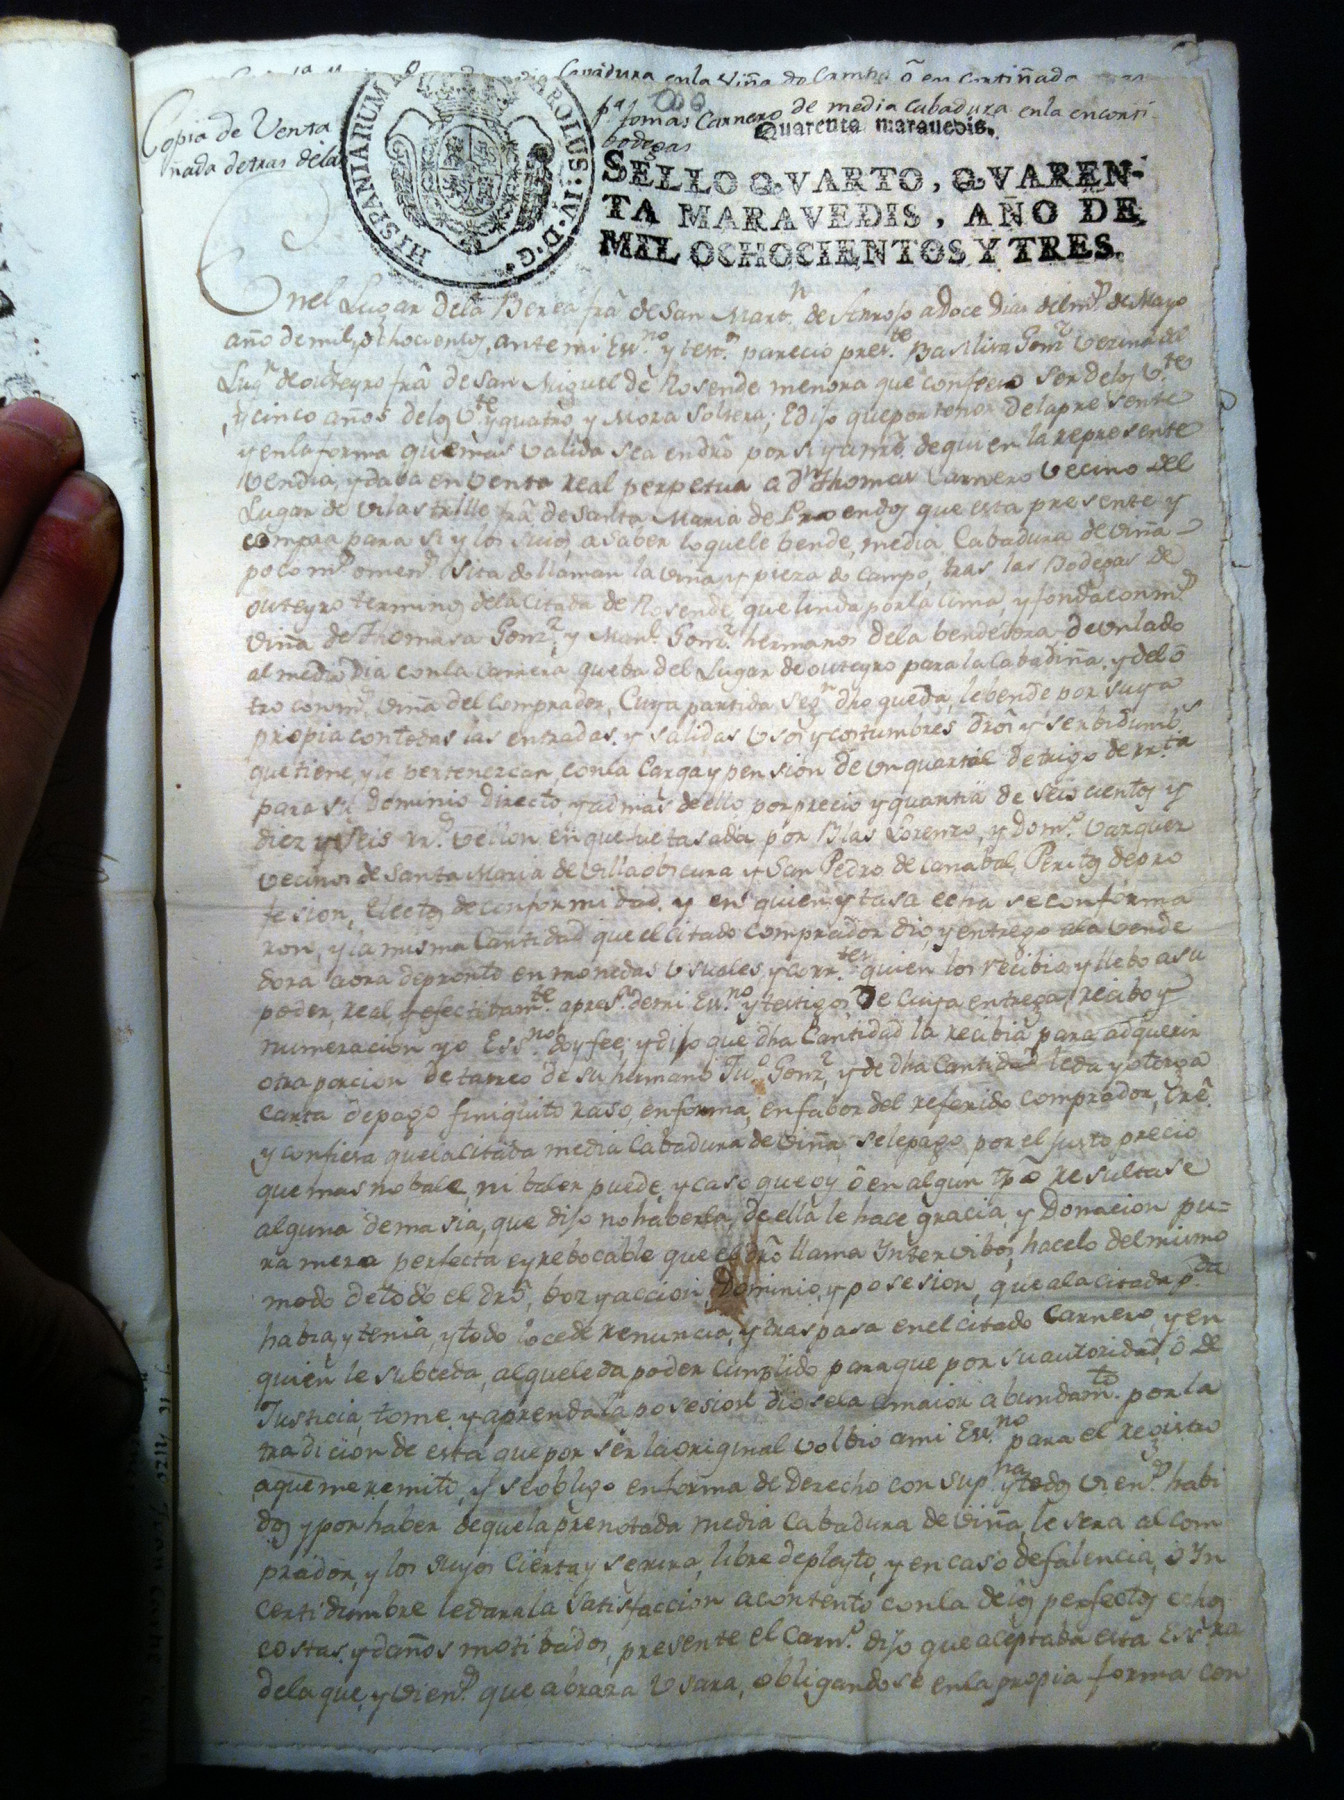 Cabadura en la Viña do Campo ô en Cortiñada
pª tomas Carnero de media Cabadura en la en corti-
Copia de Venta
ñada detras delas
bodegas
HISPANIARUM CAROLUS·IV·D·G·
Quarenta maravedis.
SELLO QVARTO, QVAREN-
TA MARAVEDIS, AÑO DE
MIL OCHOCIENTOS Y TRES.
Enel Lugar dela frâ de San Mart.n de Arrojo a Doce Dias del m.s de Mayo
año de mil, ôchocientos, ante mi Ess.no y test.s parecio pres.te Basilisa Gonz.z Vezina del
Lug.r de outeyro frâ de San Miguel de Rosende, menora que confeso ser delos V.te
y cinco años delos V.te y quatro, y Moza Soltera; E dijo que por tenor dela presente
y en la forma que mas valida sea en drô por si y a nre. de quien la represente
Vendia, y daba en Venta Real perpetua a D.n Thomas Carnero Vecino del
Lugar de Vilastrille frâ de Santa Maria de Proendos que esta presente y
compra para si y los suios, asaber loquele bende, media Cabadura de viña
poco m.s omen.s sita do llaman la viña y pieza do Campo, tras las Bodegas de
outeyro terminos dela citada de Rosende, que linda por la cima, y fonda con m.s
viña de Thomasa Gonz.z, y Man.l Gonz.z hermanos dela bendedora de un lado
al medio Dia con la Carrera que ba del Lugar de outeyro para la Cabadiña, y del ô
tro con m.s viña del Comprador, Cuya partida seg.n dho queda, le bende por suya
propia con todas las entradas, y salidas usos y costumbres drôs y serbidumb.s
que tiene, y le pertenezcan, con la Carga y pension de un quartal de trigo de rr.ta
para su dominio directo, y admas de ello por precio y quantia de seis cientos y
diez y seis rr.s vellon en que fue tasada por Blas Lorenzo, y Dom.o Vazquez
vecinos de Santa Maria de Villaobscura y San Pedro de Canabal, Peritos de pro
fesion, Electos de conformidad, y en quien y tasa echa se conforma
ron, y la misma Cantidad que el citado comprador dio y entrego ala Vende
dora aora de pronto en monedas Usuales, y corr.tes quien los recibio, y llebo a su
poder, real y efectibam.te a pres.a de mi Ess.no y testigos, de Cuya entrega, recibo y
numeracion yo Ess.no doy fee; y dijo que dha Cantidad la recibia para adquerir
otra porcion de tarreo de su hermano Ju.o Gonz.z, y de dha Cantidad le da y otorga
Carta de pago finiquito raso, en forma, en fabor del referido comprador, Crê
y confiesa que la citada media Cabadura de viña, se le pago por el justo precio
que mas no bale, ni baler puede, y caso que oy ô en algun tpô resultase
alguna demasia, que dijo no haberla, de ella le hace gracia, y Donacion pu=
ra mera perfecta eyrebocable que el drô llama Intervibos, hacelo del mismo
modo de todo el drô, boz y accion, Dominio, y posesion, que a la citada p.da
habia, y tenia, y todo lo cede renuncia, y traspasa en el citado Carnero, y en
quien le subceda, al que le da poder cumplido para que por su autoridad, ô de
Justicia, tome y aprenda la posesion diosela a maior abundam.to por la
tradicion de esta que por ser la original volbio a mi Ess.no para el registro
a que me remito, y se obligo en forma de Derecho con su p.na y todos vien.s habi
dos y por haber de que la prenotada media Cabadura de viña, le sera al com
prador, y los suyos Cierta y segura, libre de playto, y en caso de falencia, o In
certidumbre le dara la satisfaccion a contento con la delos perfectos echos
costas, y daños motibados, presente el Carn.o dijo que aceptaba esta Essra
dela que, y vien.s que abraza Usara, obligandose en la propia forma con